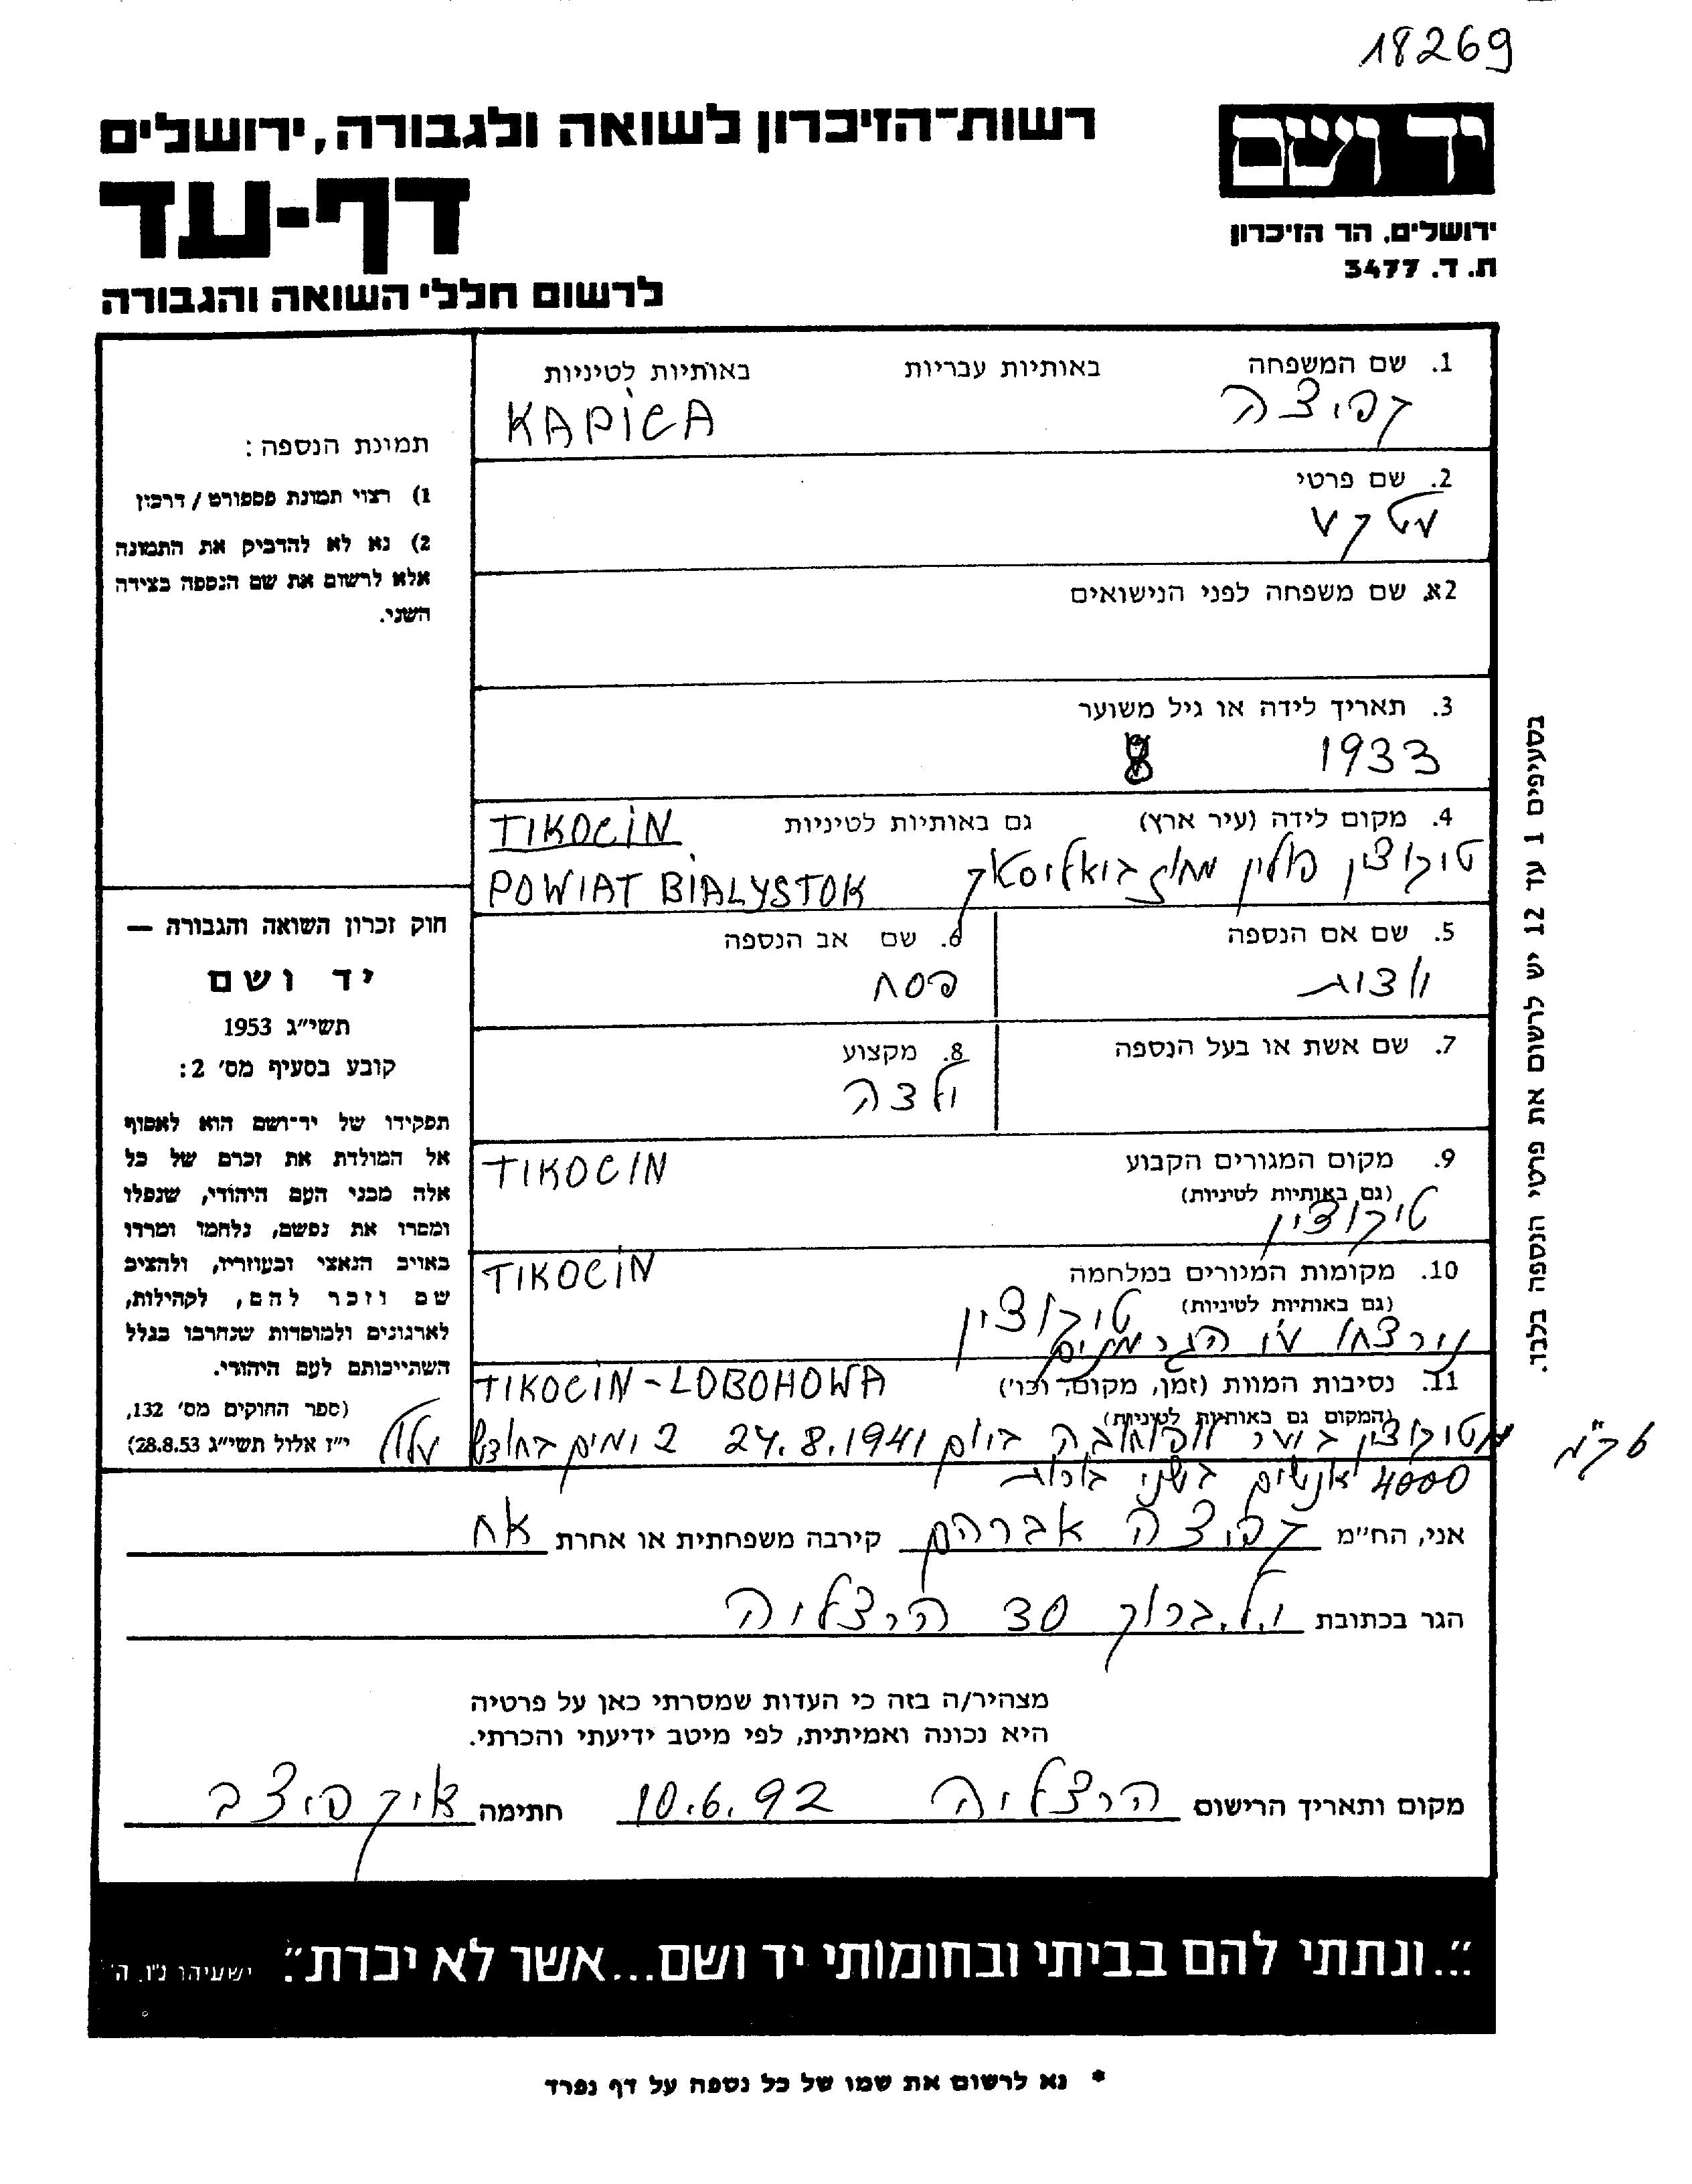 18269
יד ושם
ירושלים, הר הזיכרון
ת. ד. 3477
רשות־הזיכרון לשואה ולגבורה, ירושלים
דף-עד
לרשום חללי השואה והגבורה
1. שם המשפחה באותיות עבריות באותיות לטיניות
קפיצה KAPICA
2. שם פרטי
2א. שם משפחה לפני הנישואים
3. תאריך לידה או גיל משוער
1933 8
4. מקום לידה (עיר ארץ) גם באותיות לטיניות TIKOCIN
טיקוצין פולין מחוז ביאליסטוק POWIAT BIALYSTOK
5. שם אם הנספה 6. שם אב הנספה
פסח
7. שם אשת או בעל הנספה 8. מקצוע
ילדה
9. מקום המגורים הקבוע TIKOCIN
(גם באותיות לטיניות)
טיקוצין
10. מקומות המגורים במלחמה TIKOCIN
(גם באותיות לטיניות) טיקוצין
נירצחו ע"י הגרמנים
11. נסיבות המוות (זמן, מקום, וכו') TIKOCIN-LOBOHOWA
(המקום גם באותיות לטיניות)
טיקוצין ביער לופוחובה ביום 24.8.1941 2 ימים בחודש אלול
4000 אנשים בשני בורות
תמונת הנספה:
1) רצוי תמונת פספורט / דרכון
2) נא לא להדביק את התמונה
אלא לרשום את שם הנספה בצידה
השני.
חוק זכרון השואה והגבורה —
יד ושם
תשי"ג 1953
קובע בסעיף מס' 2:
תפקידו של יד־ושם הוא לאסוף
אל המולדת את זכרם של כל
אלה מבני העם היהודי, שנפלו
ומסרו את נפשם, נלחמו ומרדו
באויב הנאצי ובעוזריו, ולהציב
שם וזכר להם, לקהילות,
לארגונים ולמוסדות שנחרבו בגלל
השתייכותם לעם היהודי.
(ספר החוקים מס' 132,
י"ז אלול תשי"ג 28.8.53)
בסעיפים 1 עד 12 יש לרשום את פרטי הנספה בלבד.
אני, הח"מ קפיצה אברהם קירבה משפחתית או אחרת אח
הגר בכתובת 30 הרצליה
מצהיר/ה בזה כי העדות שמסרתי כאן על פרטיה
היא נכונה ואמיתית, לפי מיטב ידיעתי והכרתי.
מקום ותאריך הרישום הרצליה 10.6.92 חתימה
"...ונתתי להם בביתי ובחומותי יד ושם...אשר לא יכרת". ישעיהו נ"ו, ה'
* נא לרשום את שמו של כל נספה על דף נפרד